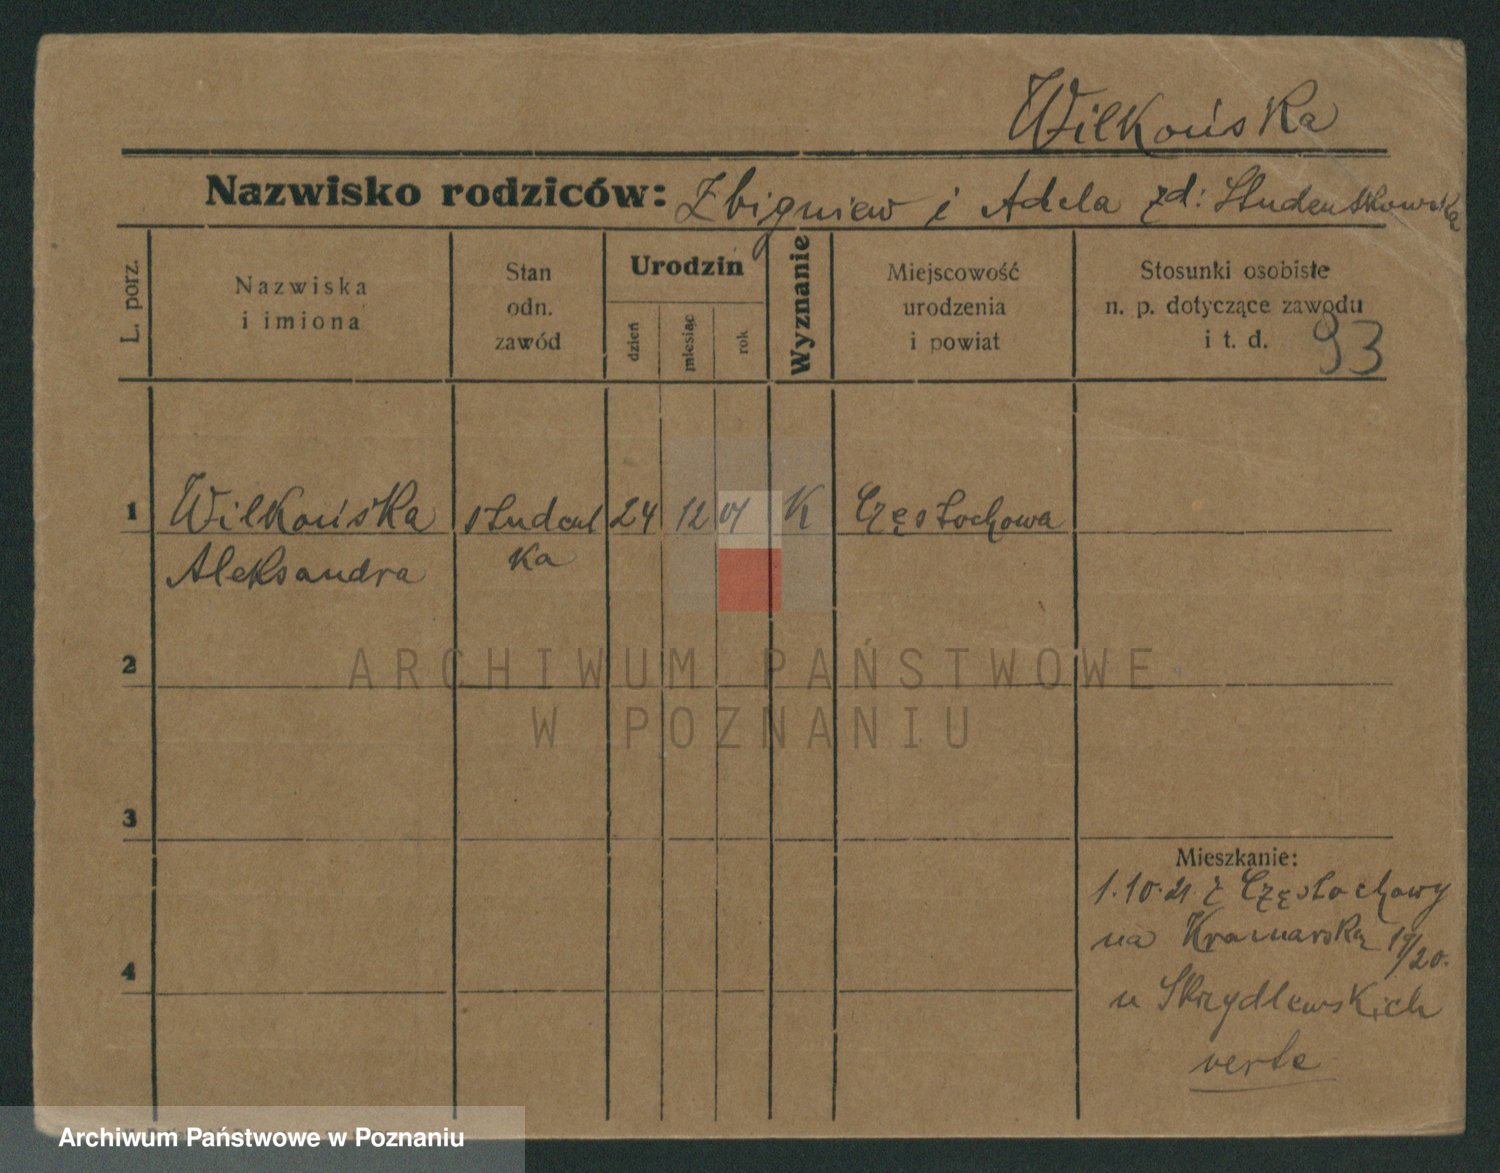 Wilkońska
Nazwisko rodziców: Zbigniew i Adela zd: Studenskowska
L. porz.
Nazwiska
i imiona
Stan
odn.
zawód
Urodzin
dzień
miesiąc
rok
Wyznanie
Miejscowość
urodzenia
i powiat
Stosunki osobiste
n. p. dotyczące zawodu
i t. d.
93
1 Wilkońska student 24 12 01 K Częstochowa
Aleksandra ka
ARCHIWUM PAŃSTWOWE
W POZNANIU
2
3
4
Mieszkanie:
1.10.21 z Częstochowy
na Kramarską 19/20.
u Skrzydlewskich
verte
Archiwum Państwowe w Poznaniu